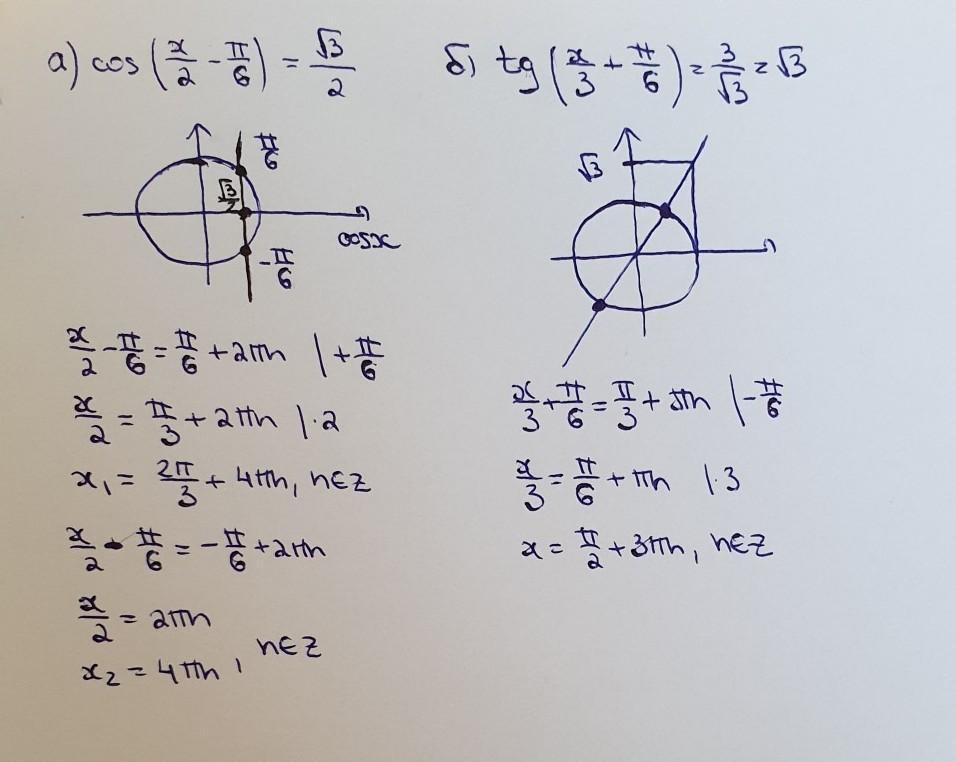 а) cos(x/2 - π/6) = √3/2
π/6
√3/2
cosx
-π/6
x/2 - π/6 = π/6 + 2πn |+π/6
x/2 = π/3 + 2πn |·2
x₁ = 2π/3 + 4πn, n∈Z
x/2 - π/6 = -π/6 + 2πn
x/2 = 2πn
x₂ = 4πn, n∈Z
б) tg(x/3 + π/6) = 3/√3 = √3
√3
x/3 + π/6 = π/3 + πn |-π/6
x/3 = π/6 + πn |·3
x = π/2 + 3πn, n∈Z